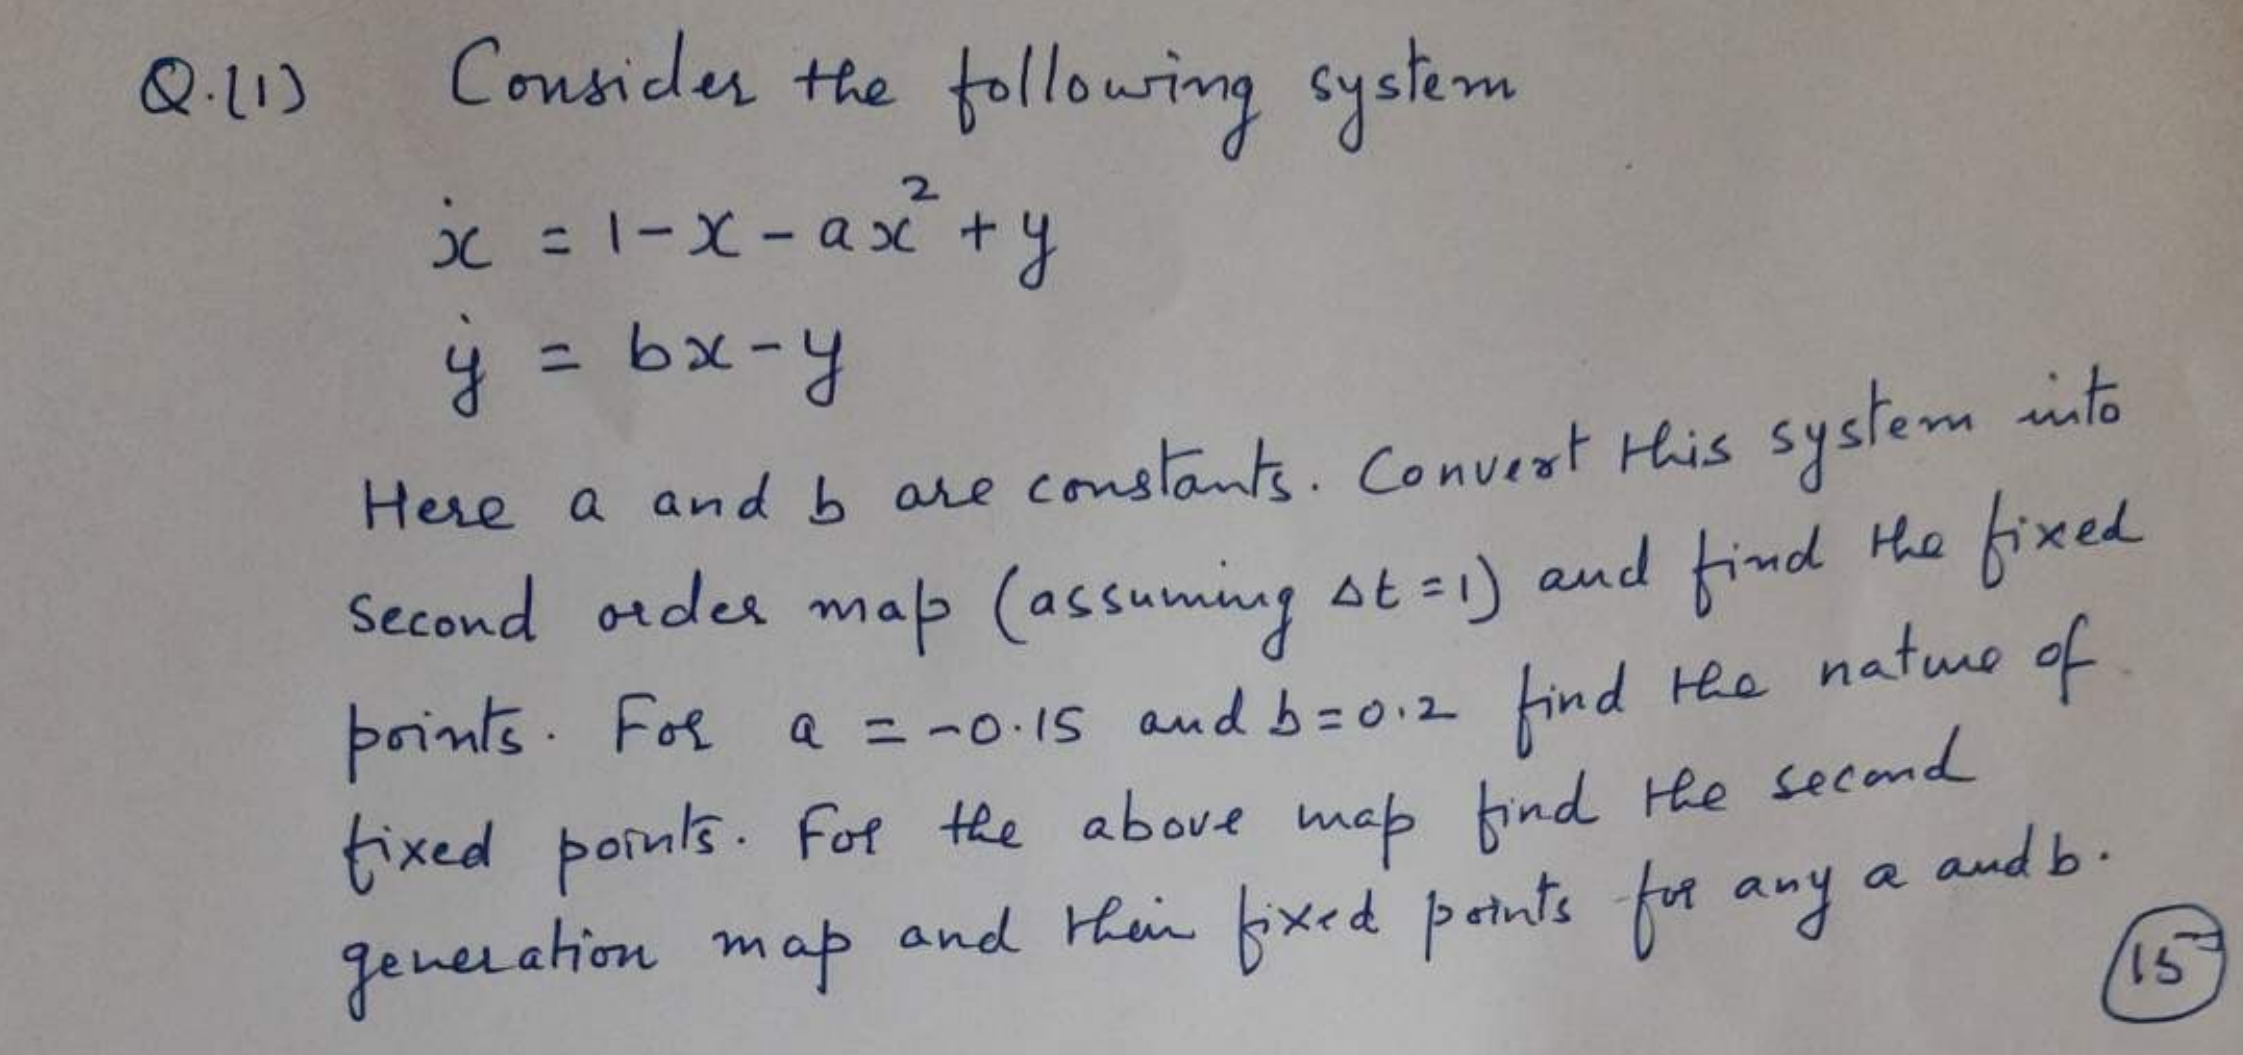 Q.(1) Consider the following system
ẋ = 1 - x - ax² + y
ẏ = bx - y
Here a and b are constants. Convert this system into
second order map (assuming Δt = 1) and find the fixed
points. For a = -0.15 and b = 0.2 find the nature of
fixed points. For the above map find the second
generation map and their fixed points for any a and b.
15